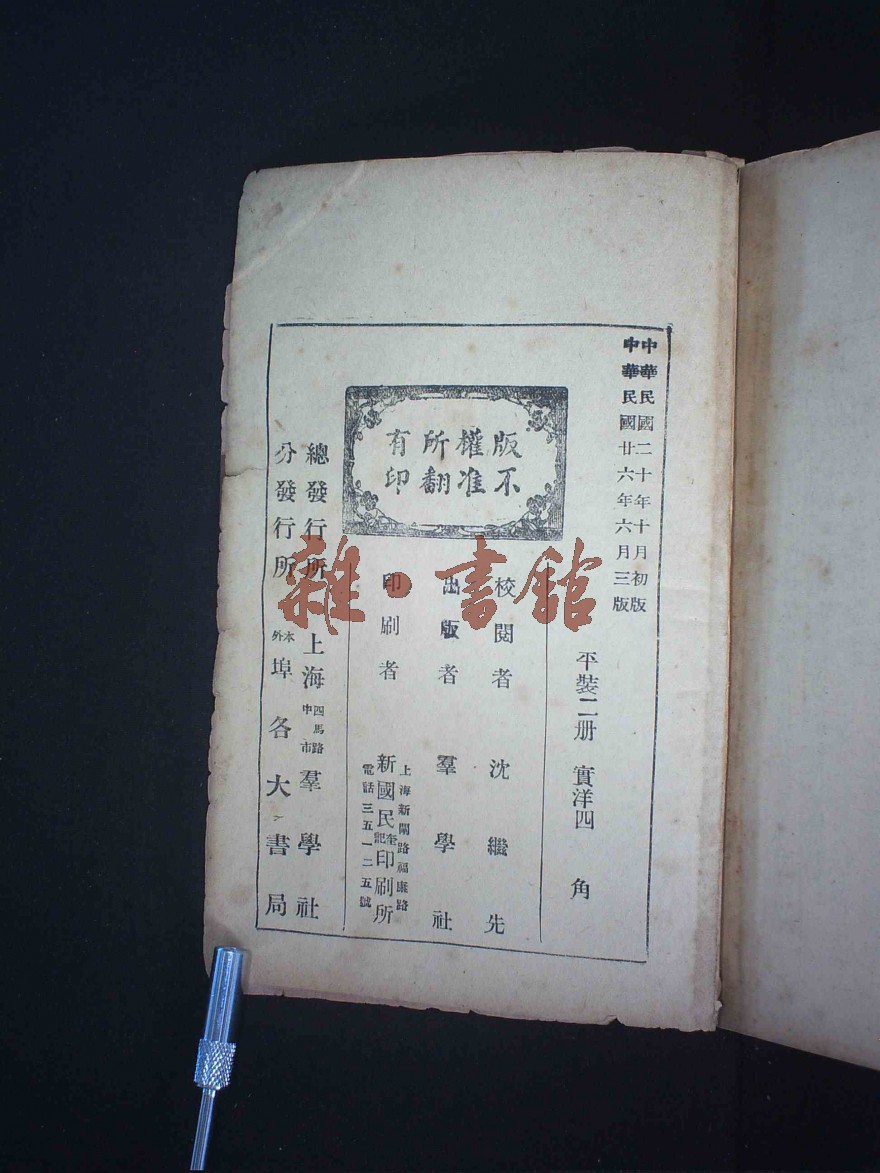 中華民國二十年十月初版
中華民國廿六年六月三版
平裝二册 實洋四角
版權所有
不准翻印
校閱者 沈繼先
出版者 羣學社
印刷者 新國民奎記印刷所
上海新閘路福康路
電話三五一二五號
總發行所 上海四馬路中市羣學社
分發行所 本外埠各大書局
雜·書館